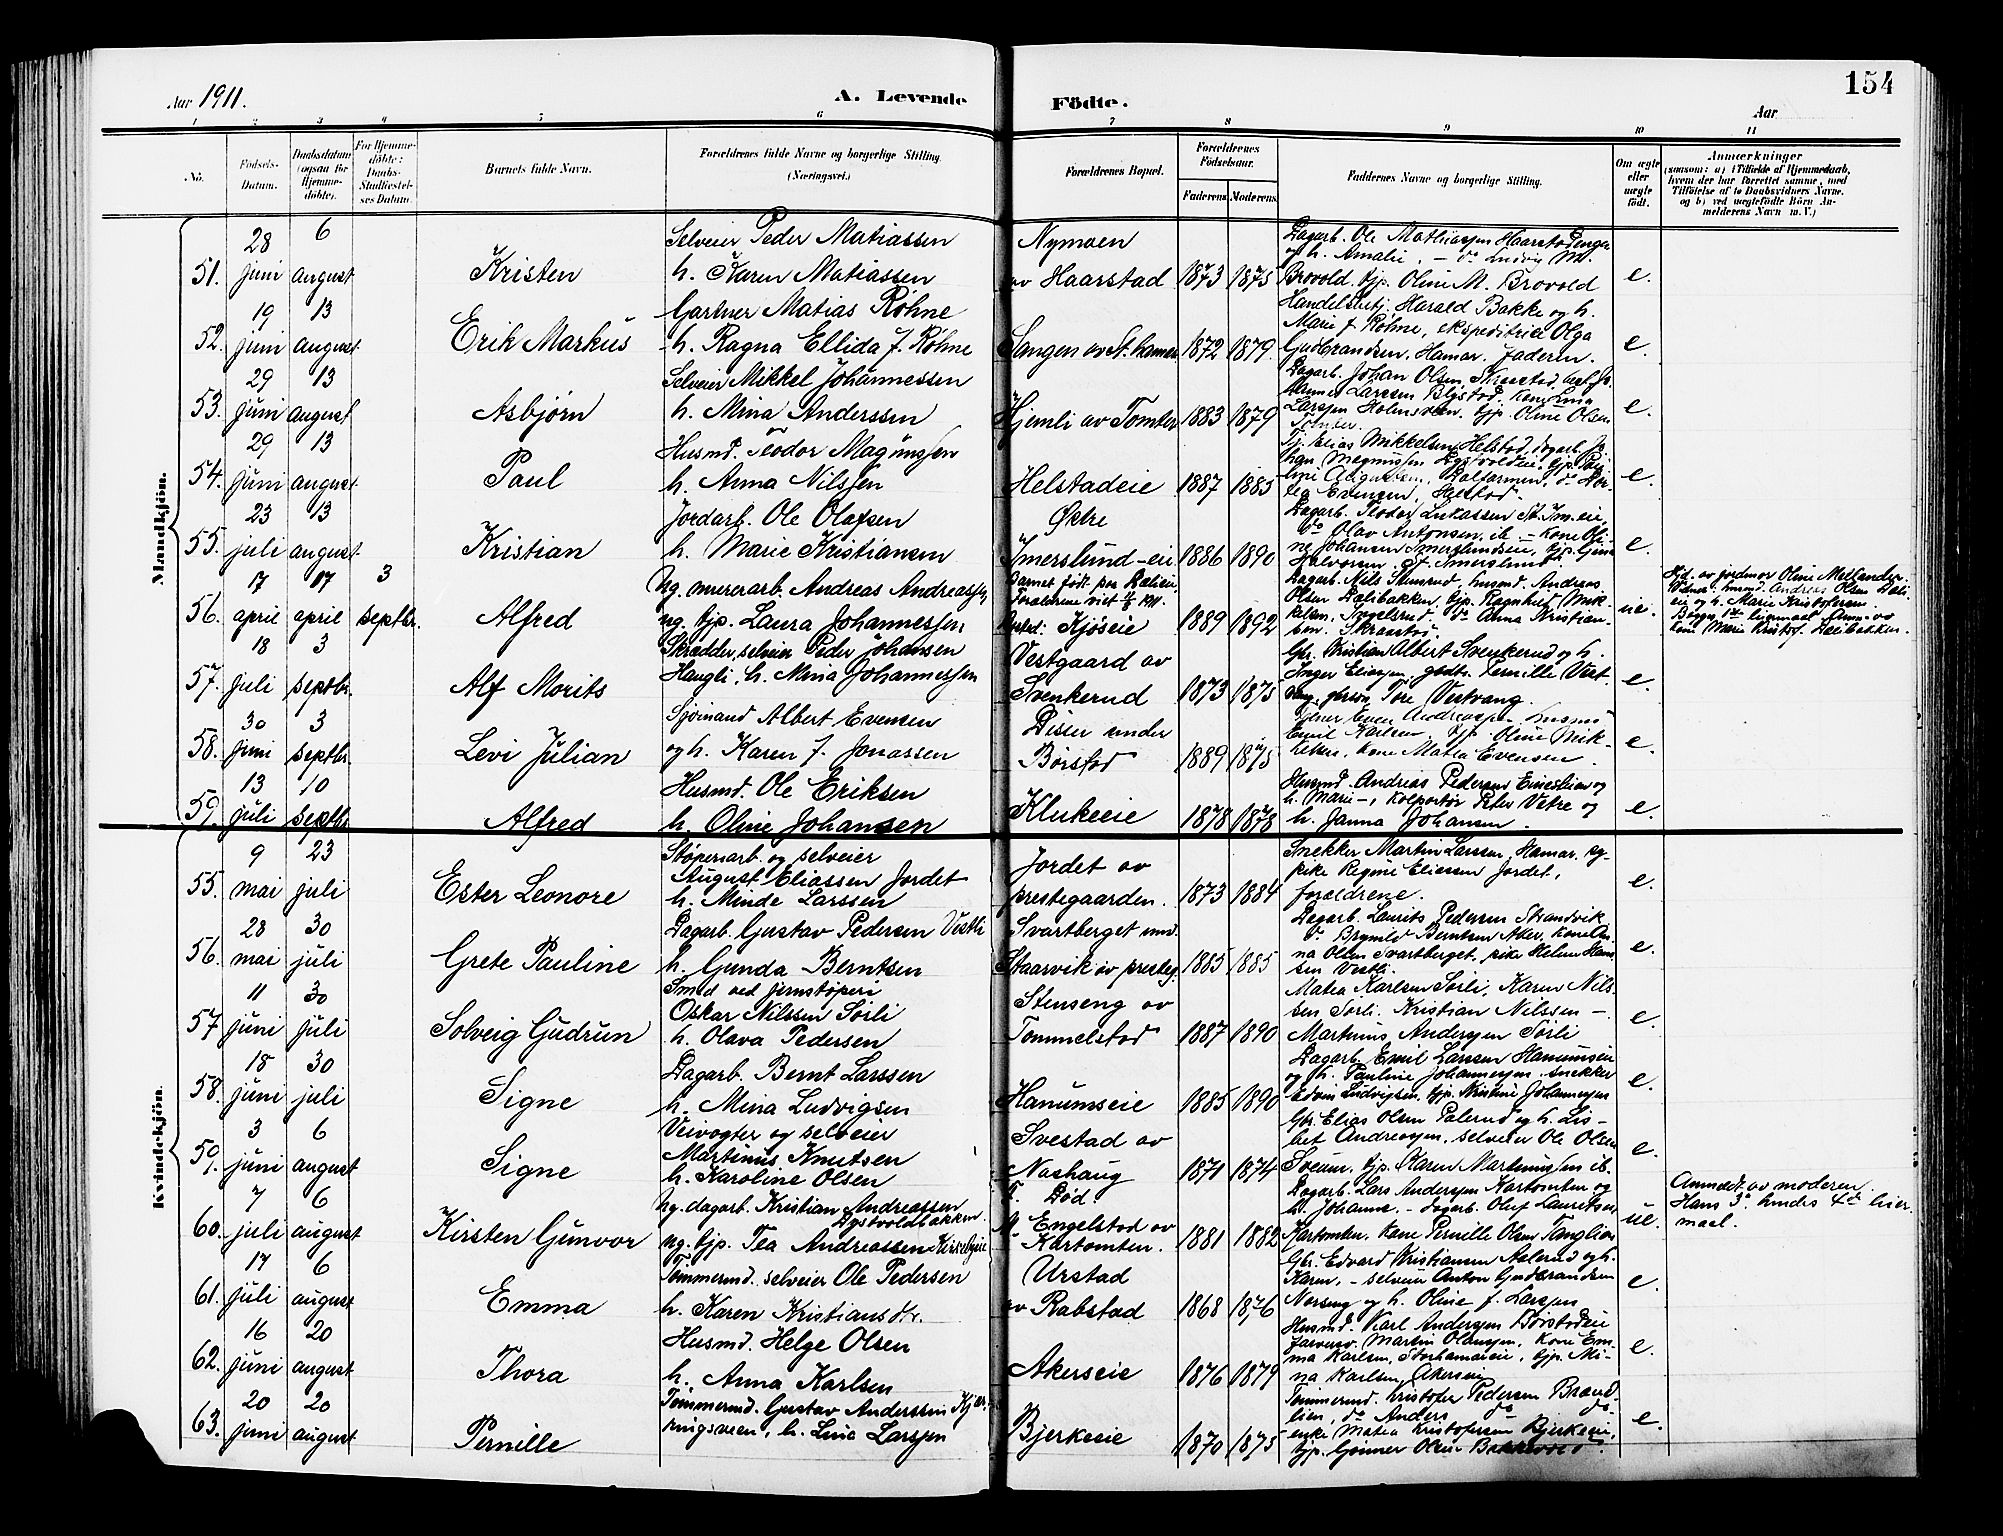 154
Aar 1911.
A. Levende Födte.
Aar
1 2 3 4 5 6 7 8 9 10 11
No.
Födsels-Datum.
Daabsdatum (ogsaa for Hjemme-döbte).
For Hjemme-döbte: Daabs-Stadfæstel-ses Datum.
Barnets fulde Navn.
Forældrenes fulde Navne og borgerlige Stilling.
(Næringsvei.)
Forældrenes Bopæl.
Forældrenes Födselsaar.
Faderens Moderens
Faddernes Navne og borgerlige Stilling.
Om ægte eller uægte födt.
Anmærkninger
(saasom: a) i Tilfælde af Hjemmedaab, hvem der har forrettet samme, med Tilföielse af to Daabsvidners Navne. og b) ved uægtefödte Börn An-melderens Navn m. V.)
Mandkjön.
51. 28 juni 6 august Kristen
Selveier Peder Matiassen
h. Karen Matiassen
Nymoen
av Haarstad 1873 1875
Dagarb. Ole Mathiassen Haarstadenga
og h. Amalie, – do Ludvig M.
Brovold. tjp. Oline M. Brovold
e.
52. 19 juni 13 august Erik Markus
Gartner Matias Röhne
h. Ragna Ellida f. Röhne
Sangen av St. hamar 1872 1879
Handelsbetj. Harald Bakke og h.
Marie f. Röhne, ekspeditrice Olga
Gudbrandsen, Hamar. Faderen.
e.
53. 29 juni 13 august Asbjørn
Selveier Mikkel Johannessen
h. Mina Anderssen
Hjemli av Tomter 1883 1879
Dagarb. Johan Olsen
Larssen Holmsveen. tjp. Oline Olsen
Tomter.
e.
54. 29 juni 13 august Paul
Husmd. Teodor Magnussen
h. Anna Nilssen
Helstadeie 1887 1885
Tj. Elias Mikkelsen Helstad, dagarb. Jo-
han Magnussen
Evensen, Helstad.
e.
55. 23 juli 13 august Kristian
Jordarb. Ole Olafsen
h. Marie Kristiansen
Østre
Imerslund-eie 1886 1890
Dagarb. Teodor Lukassen St. Im.eie,
do Olav Antonsen, ib – kone Oli-
ne Johansen Imerslundseie, tjp. Gina
Halvorsen St. Imerslund.
e.
56. 17 april 17 april 3 septbr. Alfred
Ug. murerarb. Andreas Andreassen
ug. tjp. Laura Johannessen
Barnet født paa Dælieie.
Forældrene viet 11/5 1911.
Kjøseie 1889 1892
Dagarb. Nils Stensrud, husmd. Andreas
Olsen Dælibakken, tjp. Ragnhild Mik-
kelsen, do Anna Kristian-
sen.
ue.
Hjd. av jordmor Oline Mellander.
Vidner: husmd. Andreas Olsen Dæli-
eie og h. Marie Kristofersen.
57. 18 juli 3 septbr. Alf Morits
Skrædder, selveier Peder Johansen
Haugli, h. Mina Johannessen
Vestgaard av
Svenkerud 1873 1875
Gbr. Kristian Albert Svenkerud og h.
Inger Eliassen, godtr. Pernille Vest-
Tore Vestvang.
e.
58. 30 juni 3 septbr. Levi Julian
Sjømand Albert Evensen
og h. Karen f. Jonassen
Disen under
Børstad 1889 1875
Emil Karlsen, tjp. Oline Mik-
kelsen, kone Matea Evensen.
e.
59. 13 juli 10 septbr. Alfred
Husmd. Ole Eriksen
h. Oline Johansen
Klukeeie 1878 1878
Husmd. Andreas Pedersen
h. Marie –, kolportør Peter Vetre og
h. Janna Johansen.
e.
Kvindekjön.
55. 9 mai 23 juli Ester Leonore
Støperiarb. og selveier
August Eliassen Jordet
h. Minde Larssen
Jordet av
prestegaarden. 1873 1884
Snekker Martin Larssen, Hamar, sy-
pike Regine Eliassen Jordet,
forældrene.
e.
56. 28 mai 30 juli Grete Pauline
Dagarb. Gustav Pedersen Vestli
h. Gunda Berntsen
Svartberget und.
Staarvik av presteg. 1885 1885
Dagarb. Laurits Pedersen Strandvik,
do Brynild Berntsen Aker, kone An-
na Olsen Svartberget, pike Helene Hans-
sen Vestli.
e.
57. 11 juni 30 juli Solveig Gudrun
Smed ved jernstøperi
Oskar Nilssen Sørli
h. Olava Pedersen
Stenseng av
Tommelstad 1887 1890
Matea Karlsen Sørli, Karen Nils-
sen Sørli. Kristian Nilssen –
Martinus Anderssen Sørli
e.
58. 18 juni 30 juli Signe
Dagarb. Bernt Larssen
h. Mina Ludvigsen
Hanumseie 1885 1890
Dagarb. Emil Larssen Hanumseie
og h. Pauline Johannessen, snekker
Edvin Ludvigsen, tjp. Kristine Johannessen
e.
59. 3 juni 6 august Signe
Veivogter og selveier
Martinus Knutsen
h. Karoline Olsen
Svestad av
Nashaug 1871 1874
Gbr. Elias Olsen Palerud og h. Lis-
bet Andreassen, selveier Ole Olsen
Sveum. tjp. Karen Martinussen ib.
e.
60. 7 juli 6 august Kirsten Gunvor
Ug. dagarb. Kristian Andreassen
Dystvoldbakken.
ug. tjp. Tea Andreassen Kirkebyeie
F. Død
M. Engelstad av
Kartomten. 1881 1882
Dagarb. Lars Anderssen Kartomten og
h. Johanne, – dagarb. Oluf Lauritsen
Kartomten. Kone Pernille Olsen
ue.
Anmeldt av moderen.
Hans 3die, hendes 4de leier-
maal.
61. 17 juli 6 august Emma
Tømmermd. selveier Ole Pedersen
h. Karen Kristiansdtr.
Urstad
av Rabstad 1868 1876
Gbr. Edvard Kristiansen Aalerud og h.
Karen, – selveier Anton Gudbrandsen
Norseng og h. Oline f. Larssen
e.
62. 16 juni 20 august Thora
Husmd. Helge Olsen
h. Anna Karlsen
Akerseie 1876 1879
Husmd. Karl Anderssen Børstadeie
Martin Olaussen, kone Em-
ma Karlsen, Storhamareie, tjp. Mi-
na Karlsen, Akerseie
e.
63. 20 juni 20 august Pernille
Tømmermd. Gustav Anderssen Kjær-
ningsveien, h. Lina Larssen
Bjerkeeie 1870 1875
Tømmermd. Kristofer Pedersen Brænd-
lien, do Anders do do
enke Matea Kristofersen Bjerkeeie,
tjp. Gunner Olsen Bakkevold
e.